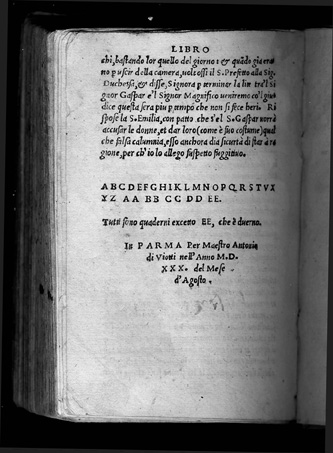 LIBRO
chi, bastando lor quello del giorno: & quãdo già erano
no p uscir della camera, volt ossi il S. Prefetto alla Sig.
Duchessa, & disse, Signora p terminar la lite tra'l Si
gnor Gaspar e'l Signor Magnifico veniremo co'l giu
dice questa sera piu p tempo che non si fece heri. Ri
spose la S. Emilia, con patto che s'el S. Gaspar vorrà
accusar le donne, et dar loro (come è suo costume) qual
che falsa calumnia, esso anchora dia sicurtà di star à ra
gione, per ch'io lo allego suspetto fuggitivo.
ABCDEFGHIKLMNOPQRSTVX
YZ AA BB CC DD EE.
Tutti sono quaderni excetto EE, che è duerno.
In PARMA Per Maestro Antonio
di Viotti nell'Anno M.D.
XXX. del Mese
d'Agosto.